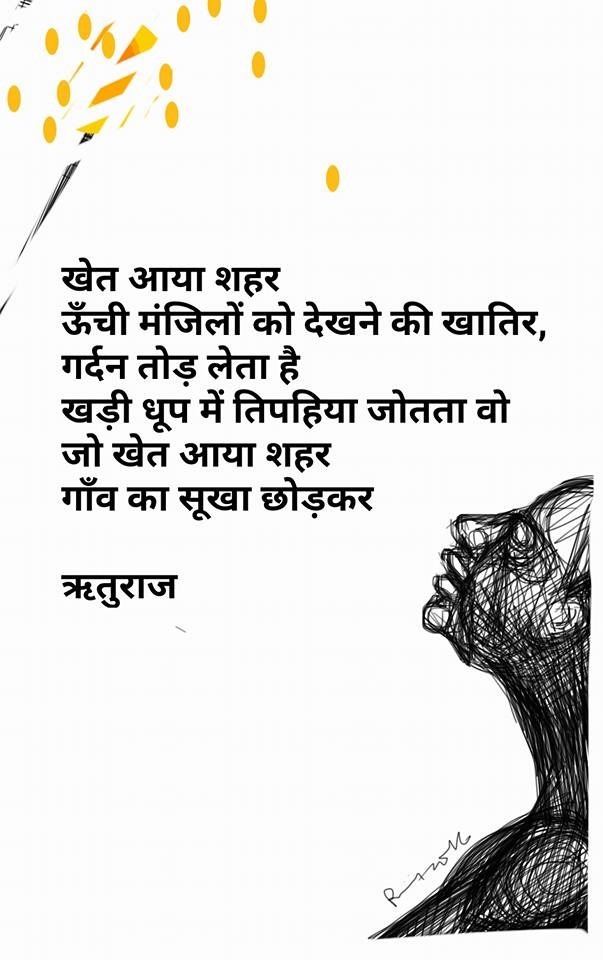 खेत आया शहर
ऊँची मंजिलों को देखने की खातिर,
गर्दन तोड़ लेता है
खड़ी धूप में तिपहिया जोतता वो
जो खेत आया शहर
गाँव का सूखा छोड़कर
ऋतुराज